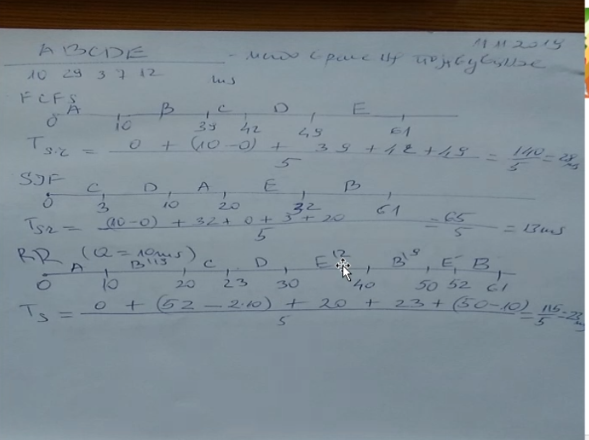 A B C D E
10 29 3 7 12 ms
FCFS
A B C D E
0 10 39 42 49 61
= 0 + (10-0) + 39 + 42 + 49 / 5 = 140/5 = 28 ms
SJF
C D A E B
0 3 10 20 32 61
= (10-0) + 32 + 0 + 3 + 20 / 5 = 65/5 = 13 ms
RR (Q = 10 ms)
A B C D E B E B
0 10 20 23 30 40 50 52 61
= 0 + (52 - 2·10) + 20 + 23 + (50-10) / 5 = 115/5 = 23